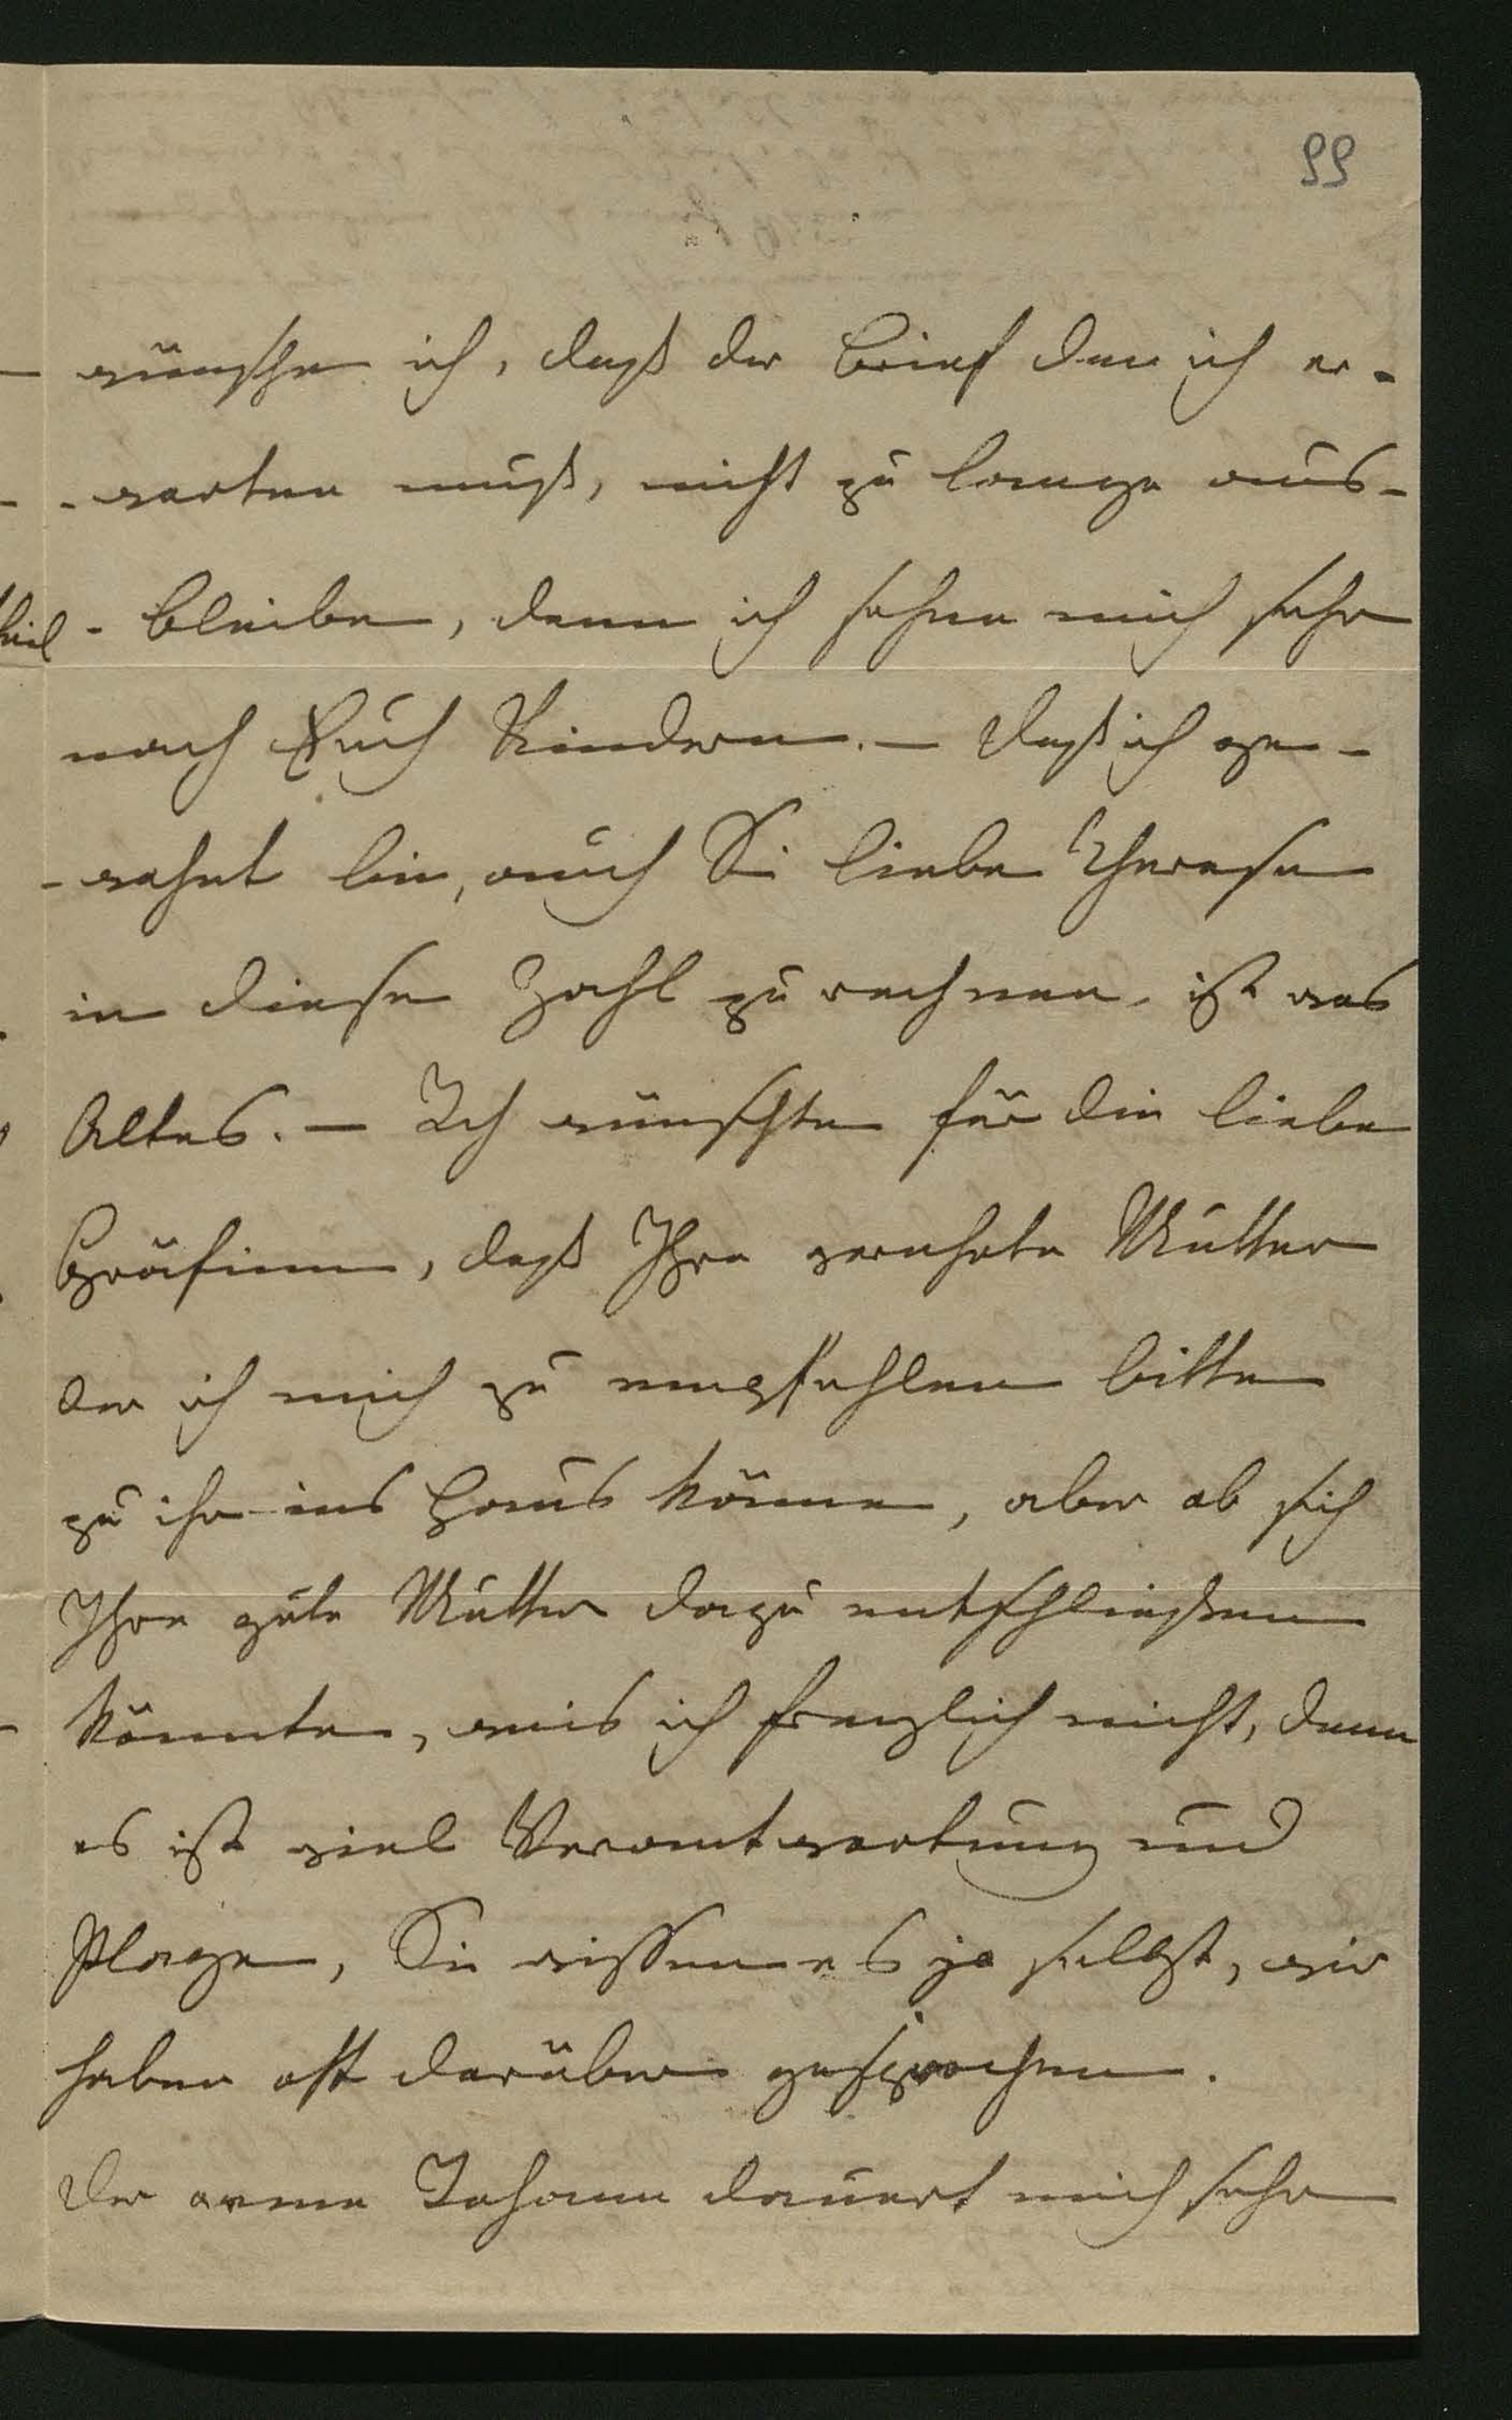 99
wünsche ich, daß der Brief den ich er-
-warten muß, nicht zu lange aus-
-bleibe, denn ich sehne mich sehr
nach Euch Kindern. — Daß ich ge-
-wohnt bin, auch Sie liebe Therese
in diese Zahl zu rechnen, ist was
Altes. — Ich wünschte für die liebe
Gräfinn, daß Ihre verehrte Mutter
der ich mich zu empfehlen bitte
zu ihr ins Haus käme, aber ob sich
Ihre gute Mutter dazu entschließen
könnte, weis ich freylich nicht, denn
es ist viel Verantwortung und
Plage, Sie wissen es ja selbst, wir
haben oft darüber gesprochen.
Der arme Johann dauert mich sehr